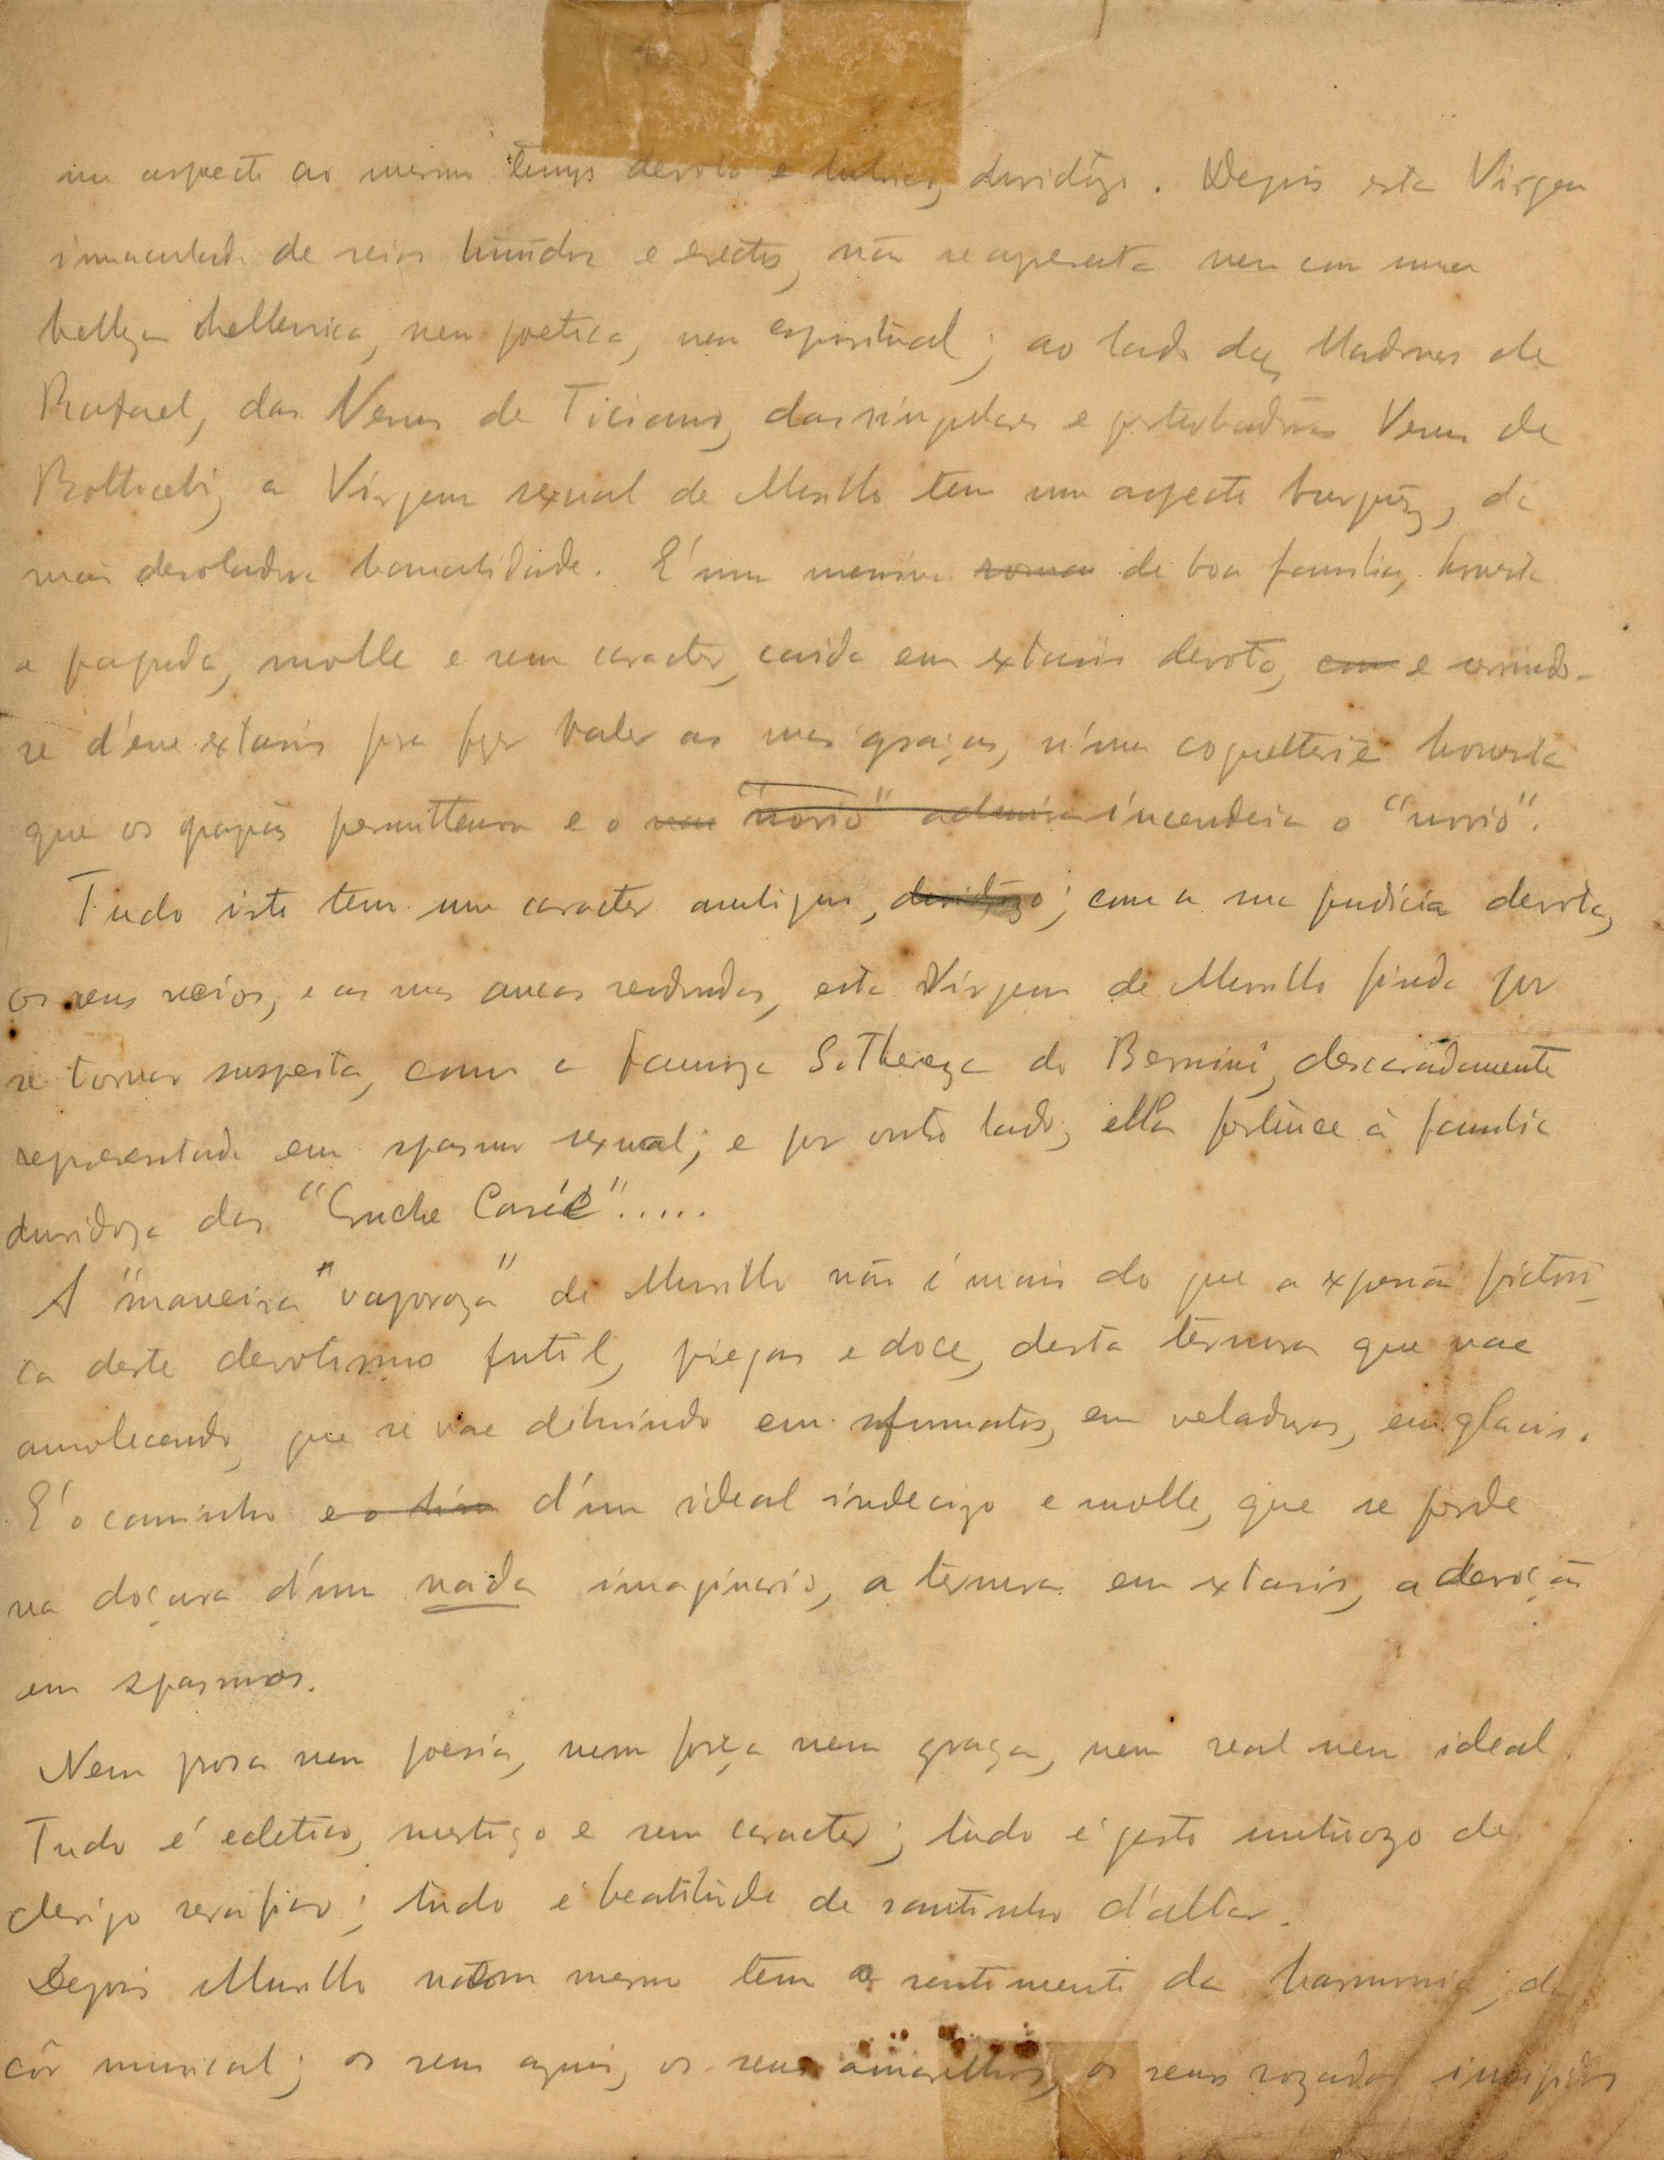 um aspecto ao mesmo tempo devoto e lubrico, duvidôzo. Depois esta Virgem
immaculada de seios túmidos e erectos, não se apresenta nem com uma
belleza hellenica, nem poetica, nem espiritual; ao lado das Madonas de
Rafael, das Venus de Ticiano, das singulares e perturbadôras Venus de
Botticeli, a Virgem sexual de Murillo tem um aspecto burguêz, da
mais desoladora banalidade. É uma menina de boa familia, honesta
e papuda, molle e sem caracter, caida em extasis devoto, e servindo-
se d'esse extasis para fazer valer as suas graças, n'uma coquetterie honesta
que os papás permittem e o incendeia o "novio".
Tudo isto tem um caracter ambiguo, duvidôzo; com a sua pudicia devota,
os seus seios, e as suas ancas redondas, esta Virgem de Murillo finda por
se tornar suspeita, como a famoza S. Thereza do Bernini, descaradamente
representada em spasmo sexual; e por outro lado, ella pertence à familia
duvidoza das "Cruche Cassée".....
A "maneira "vaporoza" de Murillo não é mais do que a expressão pictori-
ca deste devotismo futil, piegas e doce, desta ternura que vae
amolecendo, que se vae diluindo em sfumatos, em veladuras, em glacis.
É o caminho d'um ideal indecizo e molle, que se perde
na doçura d'um nada imaginario, a ternura em extasis, a devoção
em spasmos.
Nem prosa nem poesia, nem força nem graça, nem real nem ideal.
Tudo é ecletico, mestiço e sem caracter; tudo é gesto untuozo de
clerigo serafico; tudo é beatitude de santinho d'altar.
Depois Murillo nem mesmo tem o sentimento da harmonia, da
côr musical; os seus azuis, os seus amarellos, os seus rozados insipidos